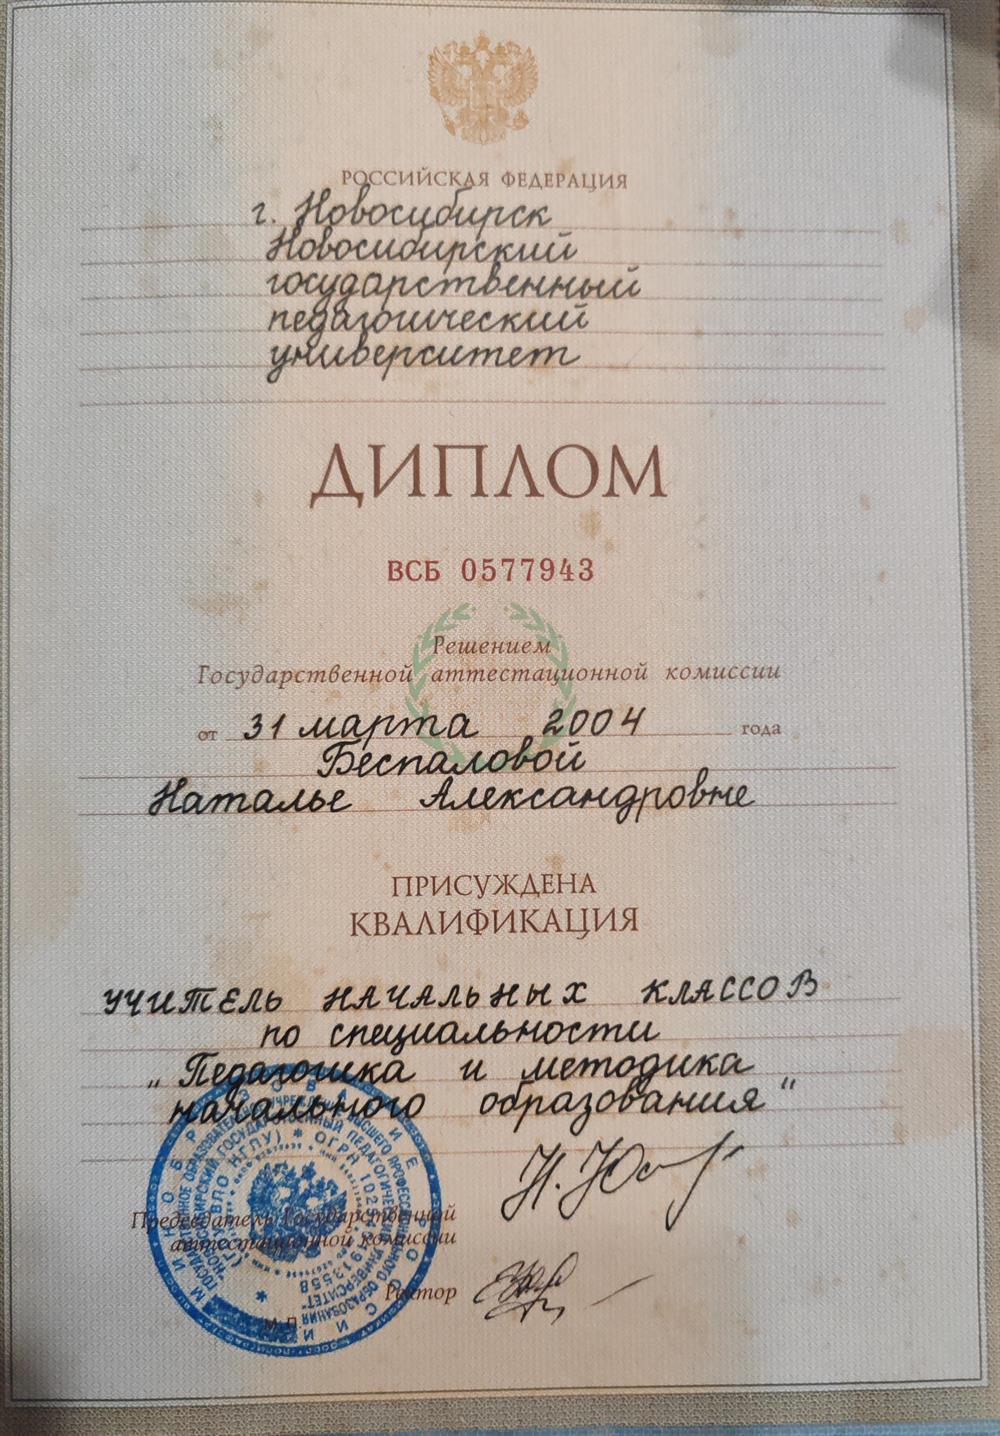 РОССИЙСКАЯ ФЕДЕРАЦИЯ
г. Новосибирск
Новосибирский
государственный
педагогический
университет
ДИПЛОМ
ВСБ 0577943
Решением
Государственной аттестационной комиссии
от 31 марта 2004 года
Беспаловой
Наталье Александровне
ПРИСУЖДЕНА
КВАЛИФИКАЦИЯ
УЧИТЕЛЬ НАЧАЛЬНЫХ КЛАССОВ
по специальности
„Педагогика и методика
начального образования"
Председатель Государственной
аттестационной комиссии
Ректор
М.П.
МИНОБРАЗОВАНИЕ РОССИИ